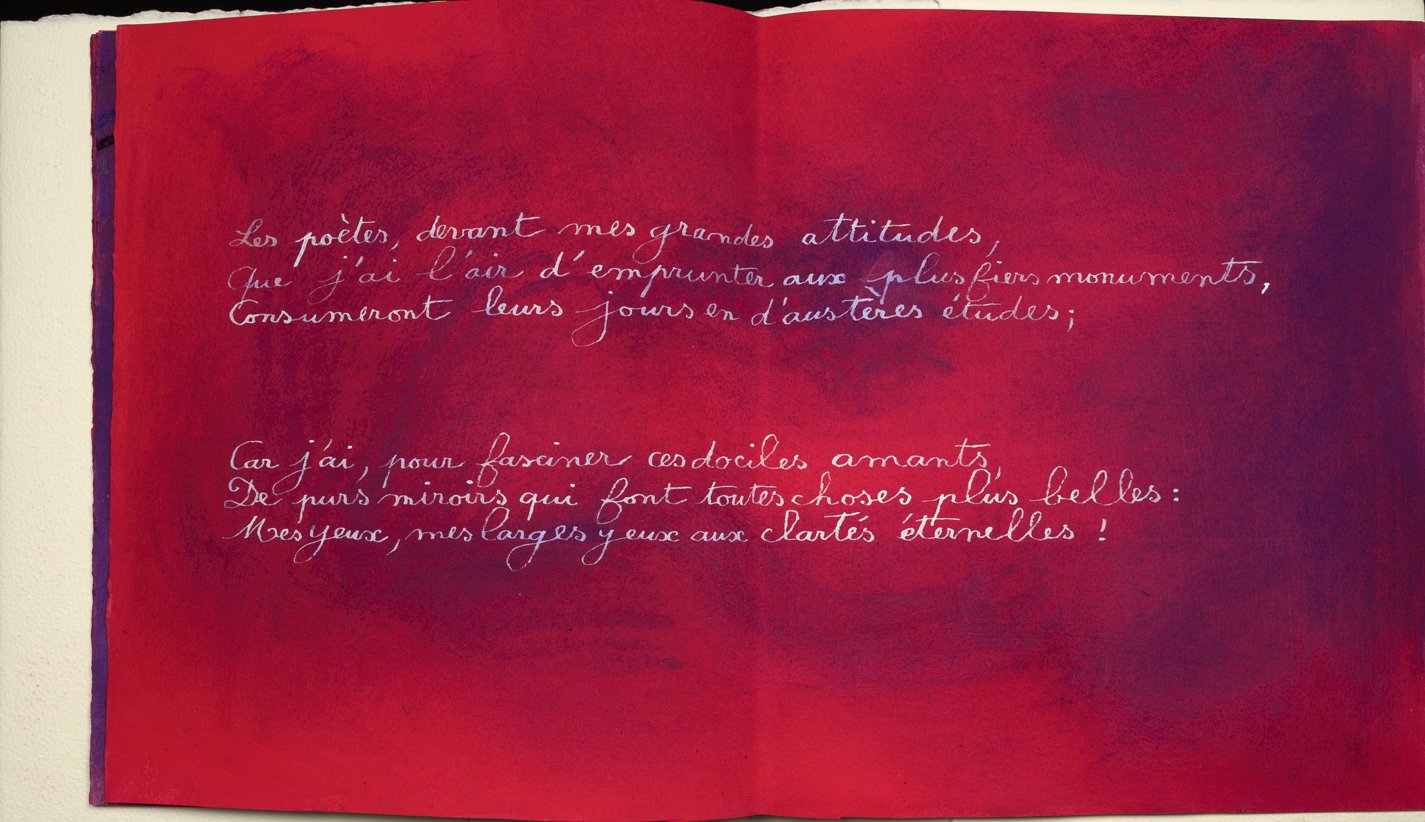 Les poètes, devant mes grandes attitudes,
Que j'ai l'air d'emprunter aux plus fiers monuments,
Consumeront leurs jours en d'austères études;
Car j'ai, pour fasciner ces dociles amants,
De purs miroirs qui font toutes choses plus belles:
Mes yeux, mes larges yeux aux clartés éternelles!